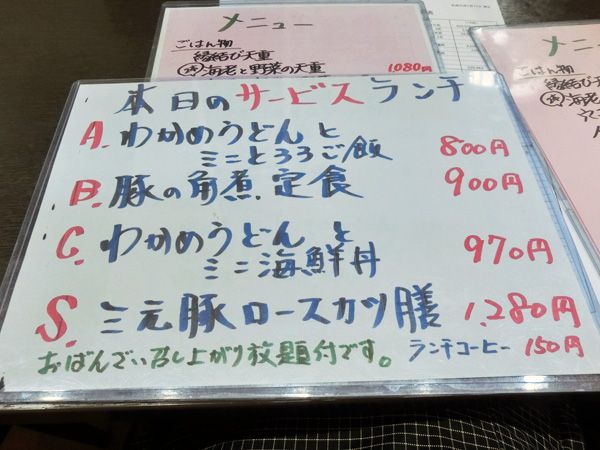 メニュー
ごはん物
縁結び天重
海老と野菜の天重 1,080円
メニ
ごはん物
海老
本日のサービスランチ
A. わかめうどんと
ミニとろろご飯 800円
B. 豚の角煮定食 900円
C. わかめうどんと
ミニ海鮮丼 970円
S. 三元豚ロースカツ膳 1,280円
おばんざい召し上がり放題付です。 ランチコーヒー 150円